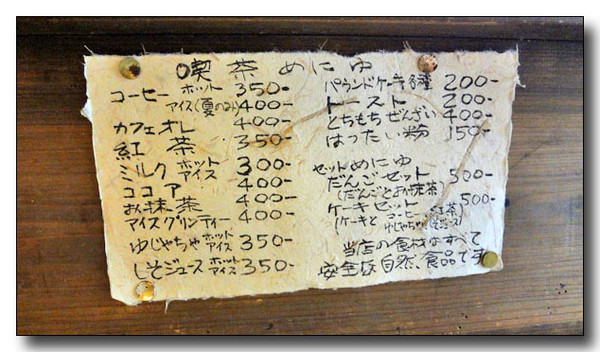 喫茶めにゅ
コーヒー ホット 350-
アイス(夏のみ) 400-
カフェオレ 400-
紅茶 350-
ミルク ホット アイス 300-
ココア 400-
お抹茶 400-
アイスグリンティー 400-
ゆじゃちゃ ホット アイス 350-
しそジュース ホット アイス 350-
パウンドケーキ各種 200-
トースト 200-
とちもちぜんざい 400-
はったい粉 150-
セットめにゅ
だんごセット 500-
(だんごとお抹茶)
ケーキセット 500-
(ケーキと コーヒー 紅茶)
ゆじゃちゃ しそジュース)
当店の食材はすべて
安全な自然食品です